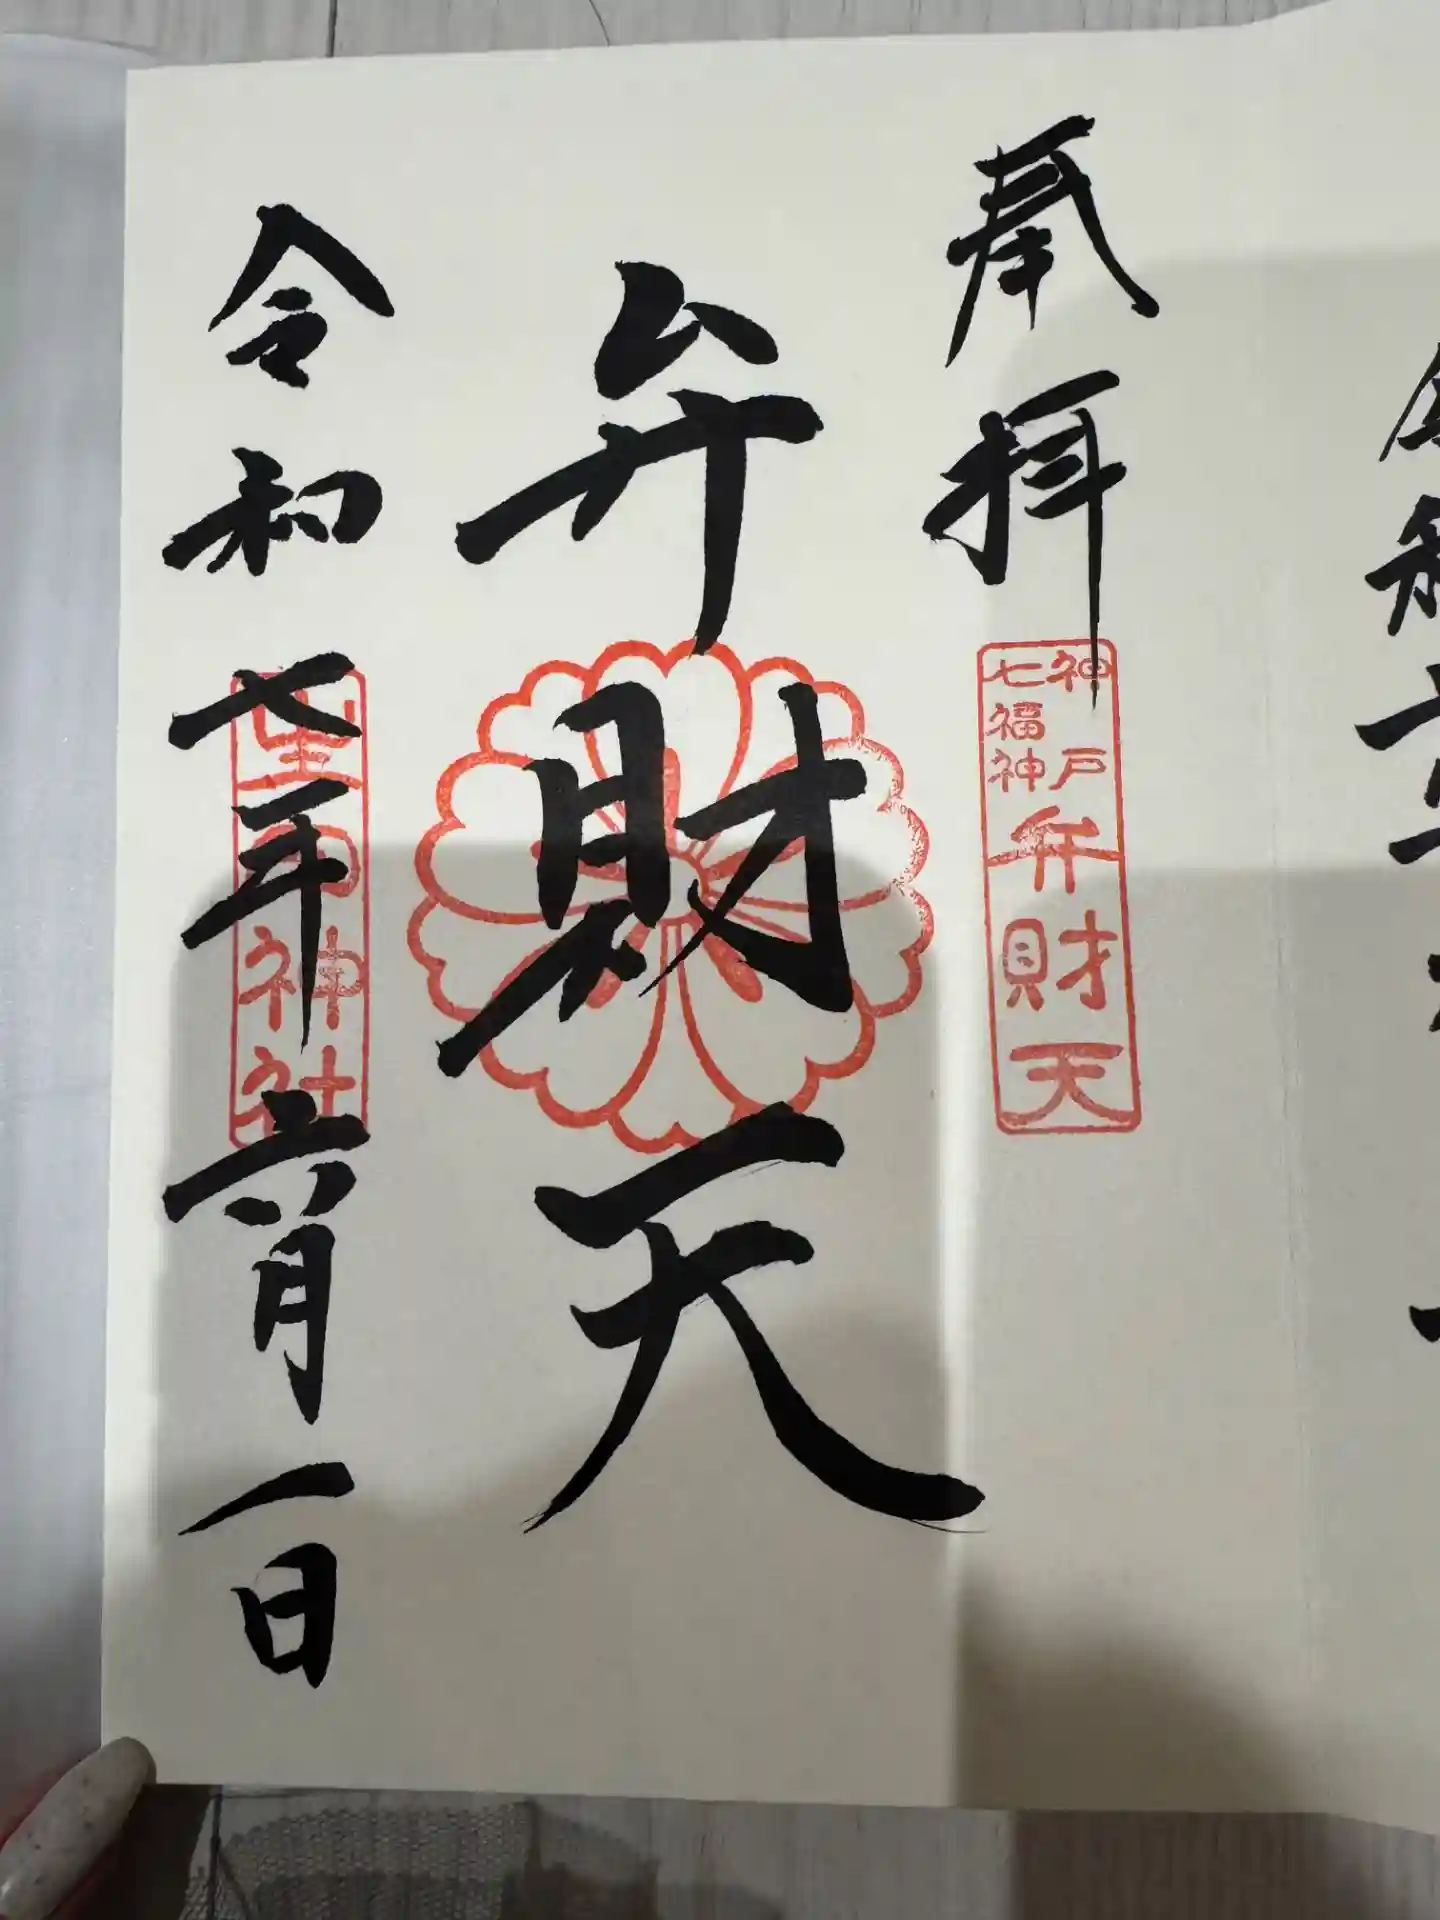 奉拝
神戸
七福神
弁財天
弁財天
令和七年六月一日
生田神社